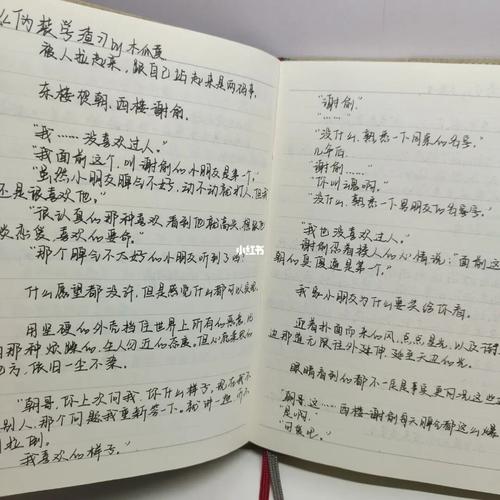 《伪装学渣》by木瓜黄
被人拉起来，跟自己站起来是两码事。
东楼贺朝，西楼谢俞。
"我……没喜欢过人。"
"我面前这个，叫谢俞的小朋友是第一个。"
"虽然小朋友脾气不好，动不动就打人，但我
还是很喜欢他。"
"很认真的那种喜欢，看到他就高兴，想跟他
谈恋爱，喜欢的要命。"
"那个脾气不太好的小朋友听到了吗
什么愿望都没许，但是感觉什么都可以实现
用坚硬的外壳挡住世界上所有的恶意
那种 生人勿近的态度。但
依旧一尘不染
"朝哥，你上次问我，你什么样子，现在我不
别人，那个问题我重新答一下。就讲一遍，听不
拉倒。
"我喜欢的样子。"
"谢俞。"
"……"
"没什么，熟悉一下同桌的名字。"
几年后
"谢俞……"
"你叫魂啊。"
"没什么，熟悉一下男朋友的名字。"
"我也没喜欢过人。"
谢俞忍着揍人的心情说："面前这
朝的 是第一个。"
我男小朋友为什么要笑给你看。
迎着扑面而来的风，点点星光，以及谢
边那道无限往外延伸，延至天边的光。
眼睛看到的都不一定是事实，更何况这些
"朝哥，这……西楼谢俞每天脾气都这么爆
"是啊。"
"可爱吧。"
小红书